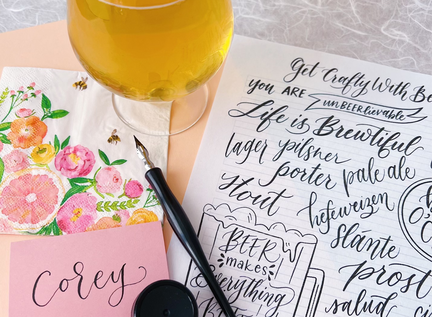 Get Crafty With Be
you ARE unBEERlievable
Life is Brewtiful
lager pilsner
porter pale ale
Stout hefeweizen
Slánte
BEER
makes
Everything
prost
salud
Corey